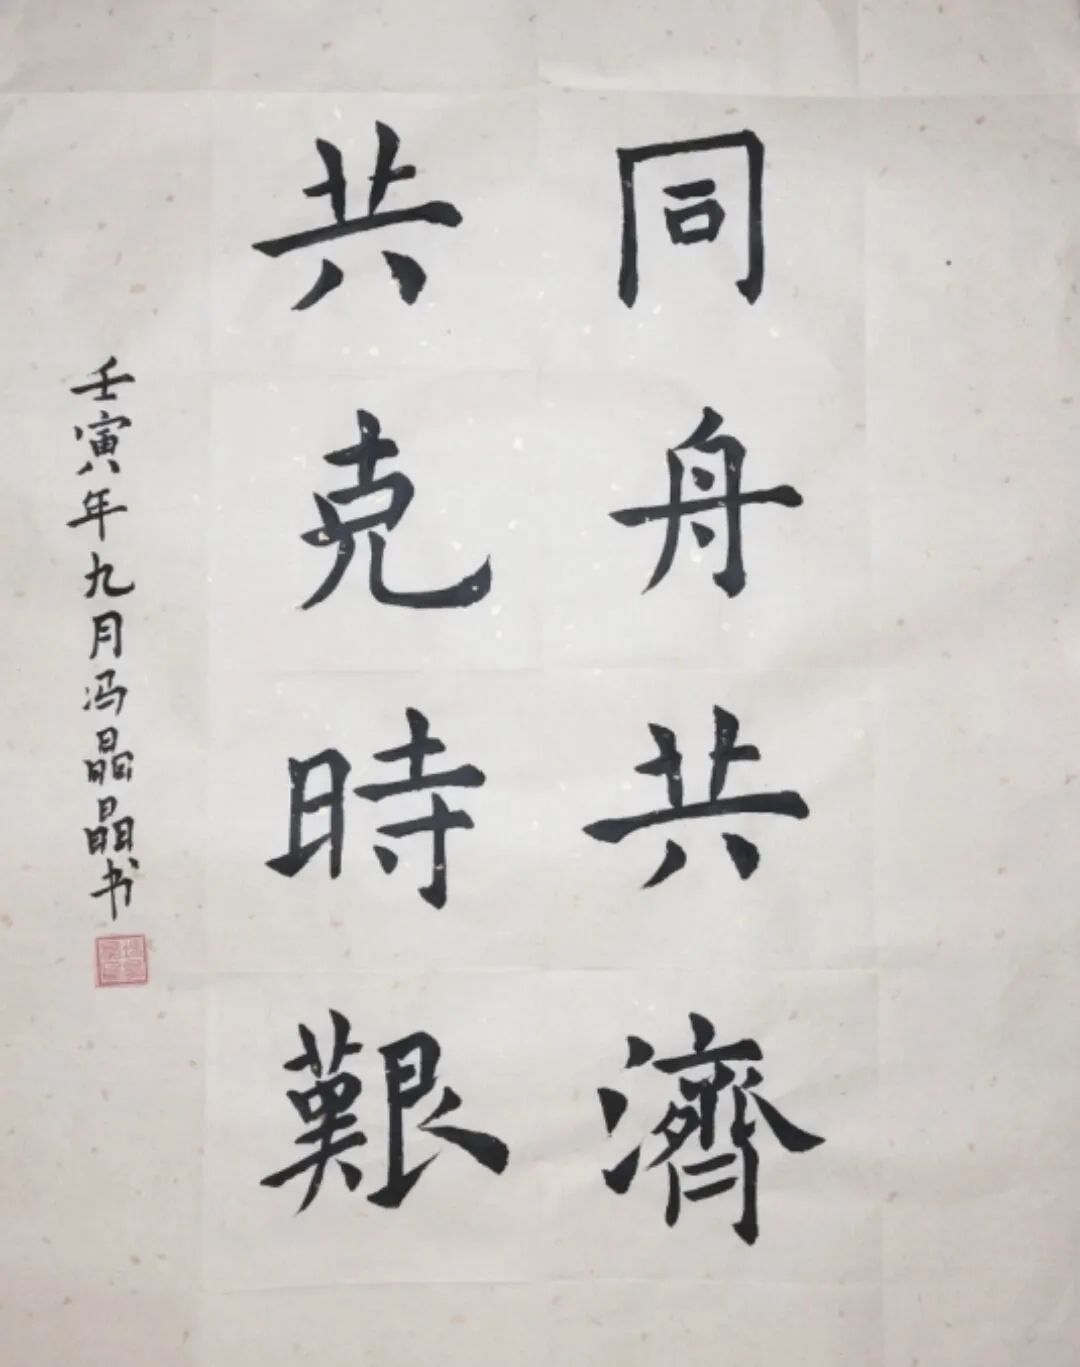 同舟共濟
共克時艱
壬寅年九月冯晶晶书